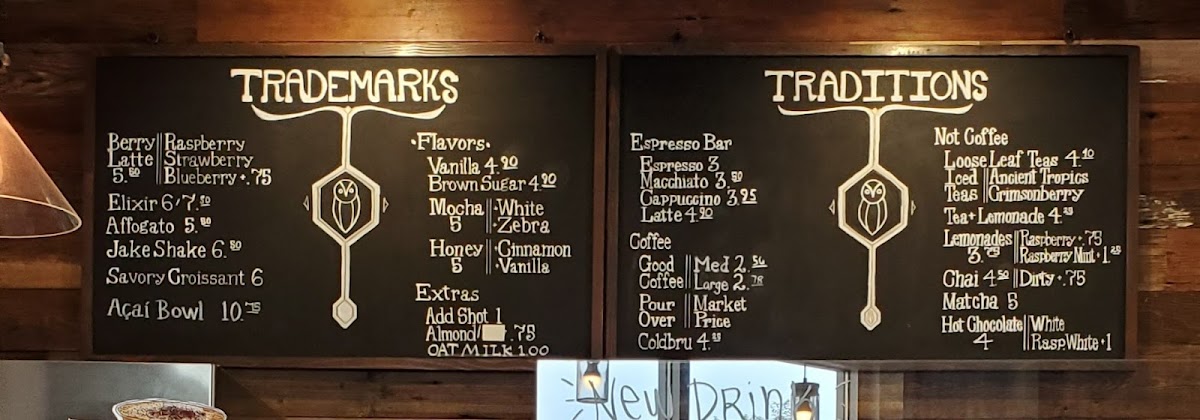 TRADEMARKS
Berry Raspberry
Latte Strawberry
5. Blueberry +.75
Elixir 6/7.
Affogato 5.
Jake Shake 6.50
Savory Croissant 6
Açaí Bowl 10.75
·Flavors·
Vanilla 4.90
Brown Sugar 4.90
Mocha ·White
5 ·Zebra
Honey ·Cinnamon
5 ·Vanilla
Extras
Add Shot 1
Almond/ .75
OAT MILK 1.00
TRADITIONS
Espresso Bar
Espresso 3
Macchiato 3.50
Cappuccino 3.95
Latte 4.20
Coffee
Good Med 2.
Coffee Large 2.78
Pour Market
Over Price
Coldbru 4.
Not Coffee
Loose Leaf Teas 4.10
Iced Ancient Tropics
Teas Crimsonberry
Tea+Lemonade 4.
Lemonades Raspberry +.75
3.75 Raspberry Mint +1.25
Chai 4.50 Dirty +.75
Matcha 5
Hot Chocolate White
4 Rasp.White +1
New Drin